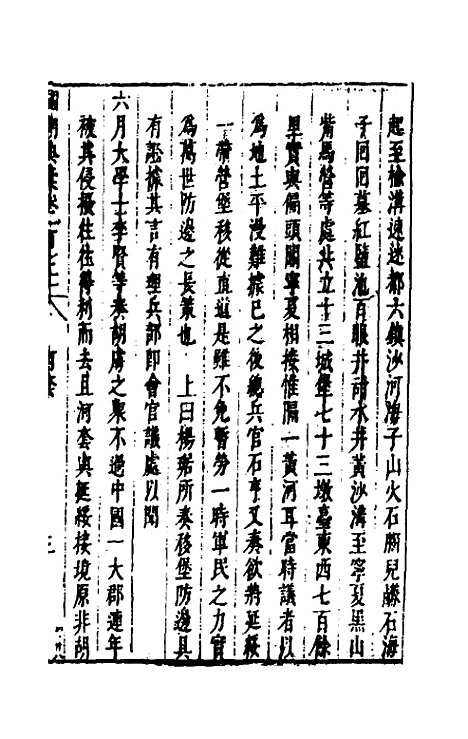 起至榆溝速迷都六鎮沙河海子山火石腦兒鹻石海
子回回墓紅鹽池百眼井甜水井黃沙溝至寧夏黑山
觜馬營等處共立十三城堡七十三墩臺東西七百餘
里實與偏頭關寧夏相接惟隔一黃河耳當時議者以
爲地土平漫難據已之後總兵官石亨又奏欲將延綏
一帶營堡移從直道是雖不免暫勞一時軍民之力實
爲萬世防邊之長策也 上曰楊琚所奏移堡防邊具
有證據其言有理兵部卽會官議處以聞
六月大學士李賢等奏胡虜之衆不過中國一大郡連年
被其侵擾往往得利而去且河套與延綏接境原非胡
國朝典彙卷一百七十 河套 三